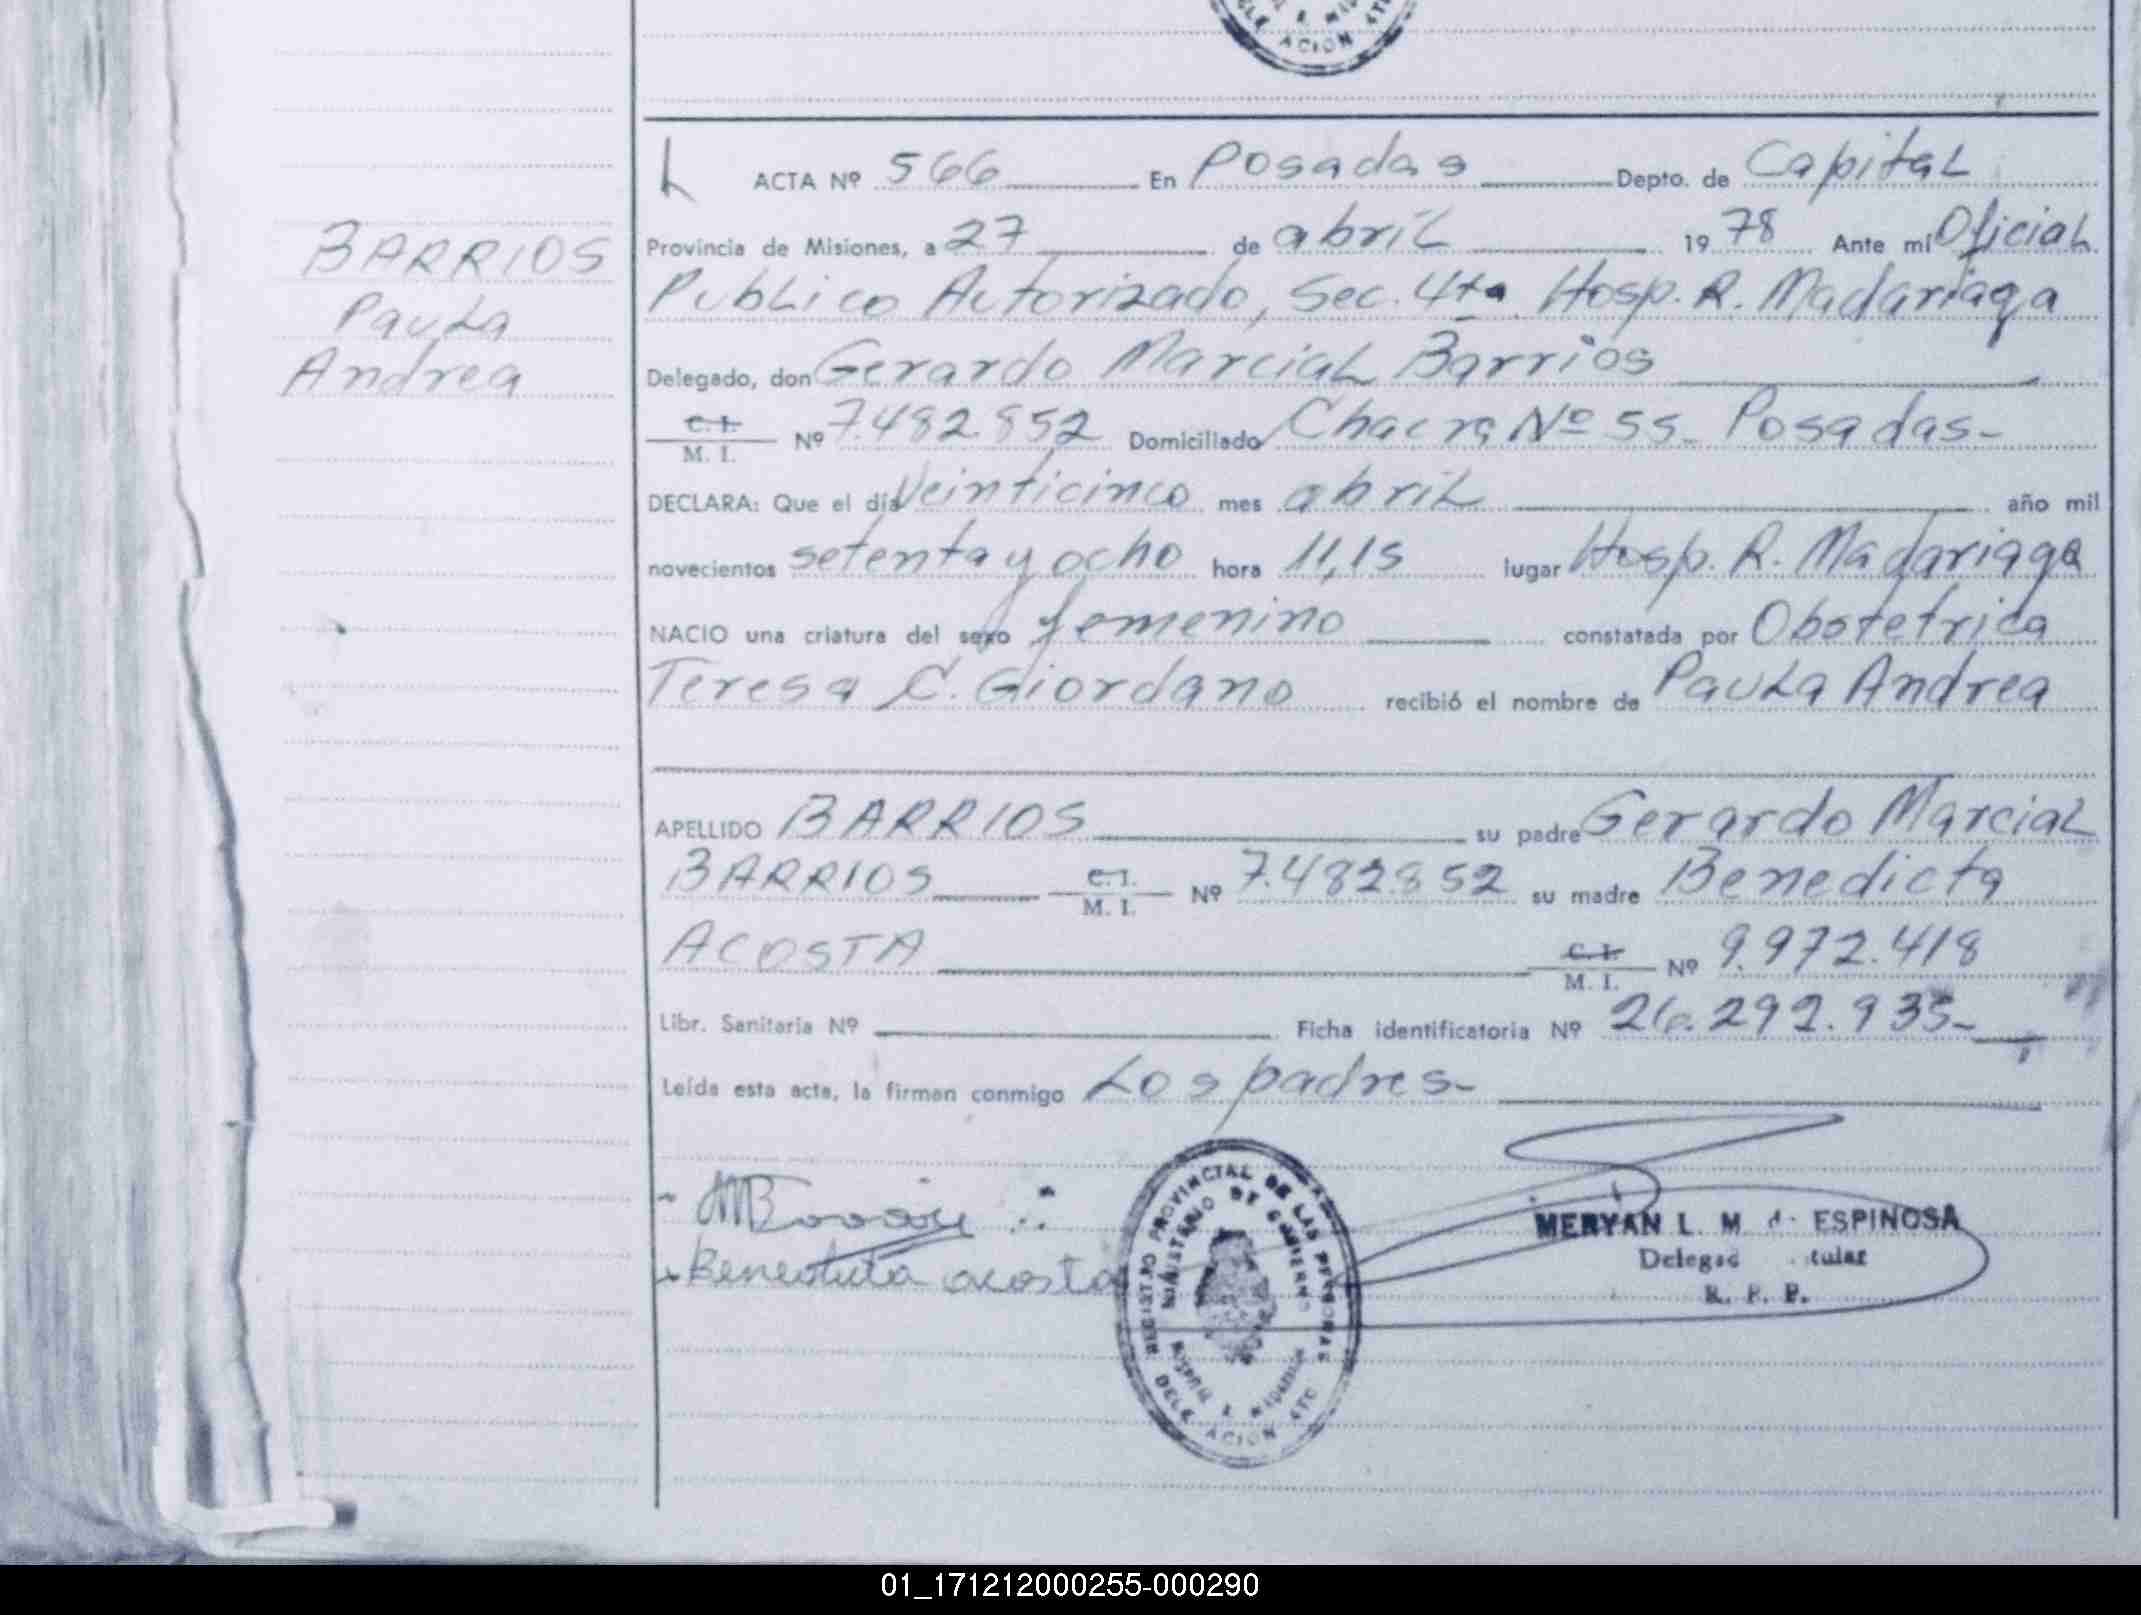 ACIÓN
ACTA Nº 566 En Posadas Depto. de Capital
Provincia de Misiones, a 27 de abril 1978 Ante mí Oficial
Publico Autorizado, Sec. 4ta Hosp. R. Madariaga
Delegado, don Gerardo Marcial Barrios
C. I.
M. I. Nº 7.482.852 Domiciliado Chacra Nº 55- Posadas-
DECLARA: Que el día Veinticinco mes abril año mil
novecientos setenta y ocho hora 11,15 lugar Hosp. R. Madariaga
NACIO una criatura del sexo femenino constatada por Obstetrica
Teresa C. Giordano recibió el nombre de Paula Andrea
APELLIDO BARRIOS su padre Gerardo Marcial
BARRIOS C. I.
M. I. Nº 7.482.852 su madre Benedicta
ACOSTA C. I.
M. I. Nº 9.972.418
Libr. Sanitaria Nº Ficha identificatoria Nº 26.292.935-
Leída esta acta, la firman conmigo Los padres-
BARRIOS
Paula
Andrea
Benedicta acosta
REGISTRO PROVINCIAL DE LAS PERSONAS
MINISTERIO DE GOBIERNO
DELEGACION 4TO
MERYAN L. M. d. ESPINOSA
R. P. P.
01_171212000255-000290